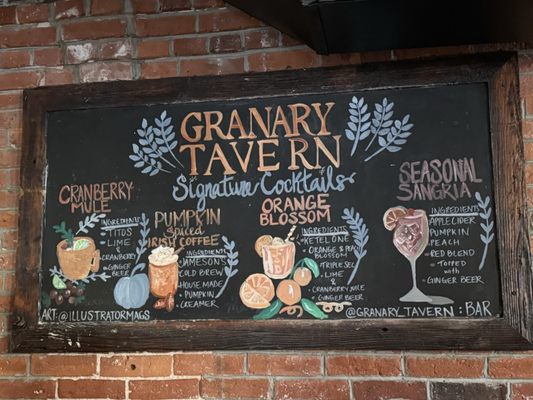 GRANARY
TAVERN
Signature Cocktails
CRANBERRY
MULE
INGREDIENTS
TITOS
LIME
CRANBERRY
GINGERBEER
PUMPKIN
Spiced
IRISH COFFEE
INGREDIENTS
JAMESONS
COLD BREW
HOUSE MADE
PUMPKIN
CREAMER
ORANGE
BLOSSOM
INGREDIENTS
KETEL ONE
ORANGE & PEACH
TRIPLE SEC
LIME
CRANBERRY JUICE
GINGER BEER
SEASONAL
SANGRIA
INGREDIENTS
APPLE CIDER
PUMPKIN
PEACH
RED BLEND
TOPPED
WITH
GINGER BEER
ART: @ILLUSTRATORMAGS
@GRANARY_TAVERN : BAR